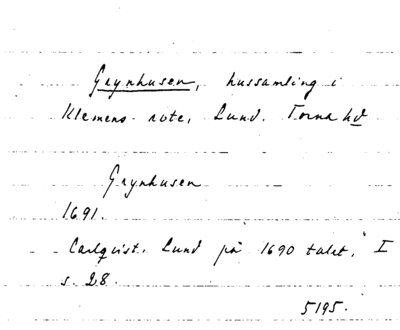 Grynhusen, hussamling i
Klemens rote, Lund. Torna hd
Grynhusen
1691.
Carlquist. Lund på 1690 talet, I
s. 28.
5195.